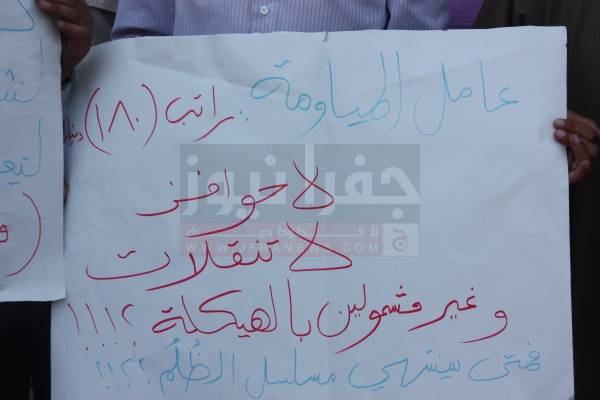 عامل المياومة .. راتب (١٨٠) دينار
لا حوافز
لا تنقلات
وغير مشمولين بالهيكلة ؟؟!!!!
فمتى سينتهي مسلسل الظُلم ؟؟!!!
جفرا نيوز
WWW.JFRANEWS.COM